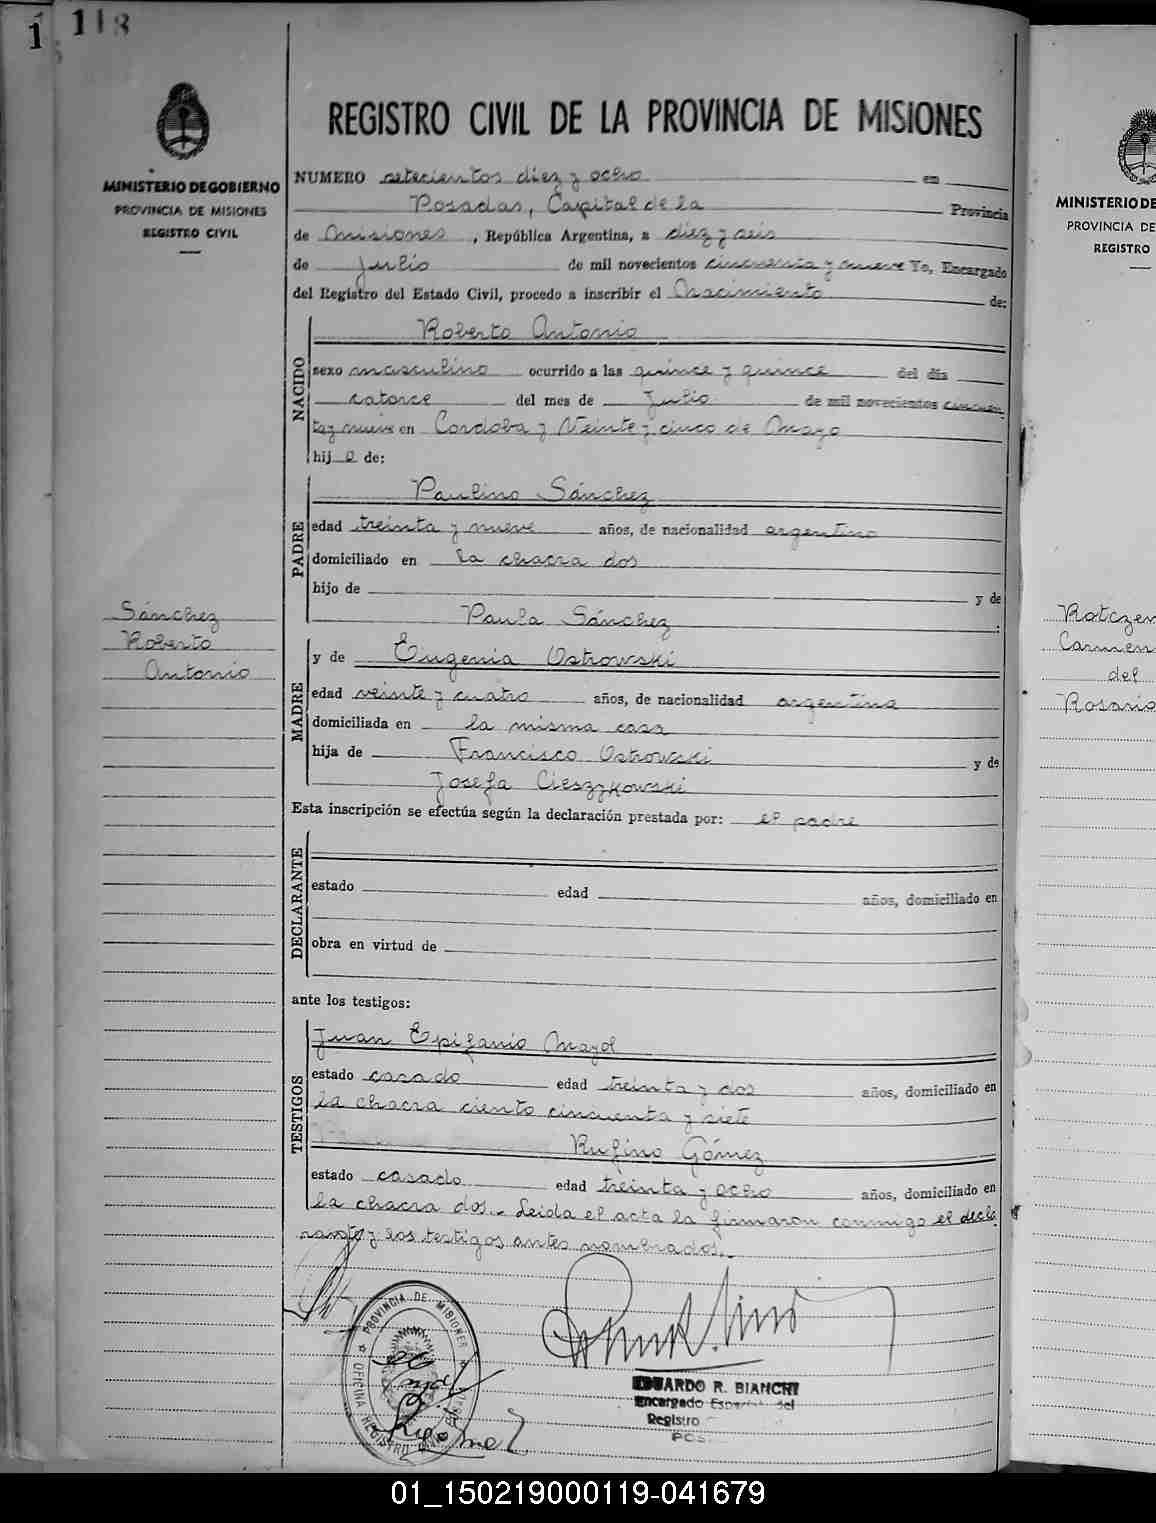 1 118
MINISTERIO DE GOBIERNO
PROVINCIA DE MISIONES
REGISTRO CIVIL
Sánchez
Roberto
Antonio
REGISTRO CIVIL DE LA PROVINCIA DE MISIONES
NUMERO setecientos diez y ocho en
Posadas, Capital de la Provincia
de Misiones, República Argentina, a diez y seis
de Julio de mil novecientos cincuenta y nueve Yo, Encargado
del Registro del Estado Civil, procedo a inscribir el Nacimiento de:
NACIDO
Roberto Antonio
sexo masculino ocurrido a las quince y quince del día
catorce del mes de Julio de mil novecientos cincuen
ta y nueve en Cordoba y Veinte y cinco de Mayo
hij o de:
PADRE
Paulino Sánchez
edad treinta y nueve años, de nacionalidad argentino
domiciliado en la chacra dos
hijo de y de
Paula Sánchez :
MADRE
y de Eugenia Ostrowski
edad veinte y cuatro años, de nacionalidad argentina
domiciliada en la misma casa
hija de Francisco Ostrowski y de
Josefa Cieszykowski
Esta inscripción se efectúa según la declaración prestada por: el padre
DECLARANTE
estado edad años, domiciliado en
obra en virtud de
ante los testigos:
TESTIGOS
Juan Epifanio Mayol
estado casado edad treinta y dos años, domiciliado en
la chacra ciento cincuenta y siete
Rufino Gómez
estado casado edad treinta y ocho años, domiciliado en
la chacra dos.- Leida el acta la firmaron conmigo el decla
rante y los testigos antes nombrados.-
PROVINCIA DE MISIONES
OFICINA REGISTRO
EDUARDO R. BIANCHI
Encargado Especial del
Registro
POS
MINISTERIO DE
PROVINCIA DE
REGISTRO
Ratczen
Carmen
del
Rosario
01_150219000119-041679